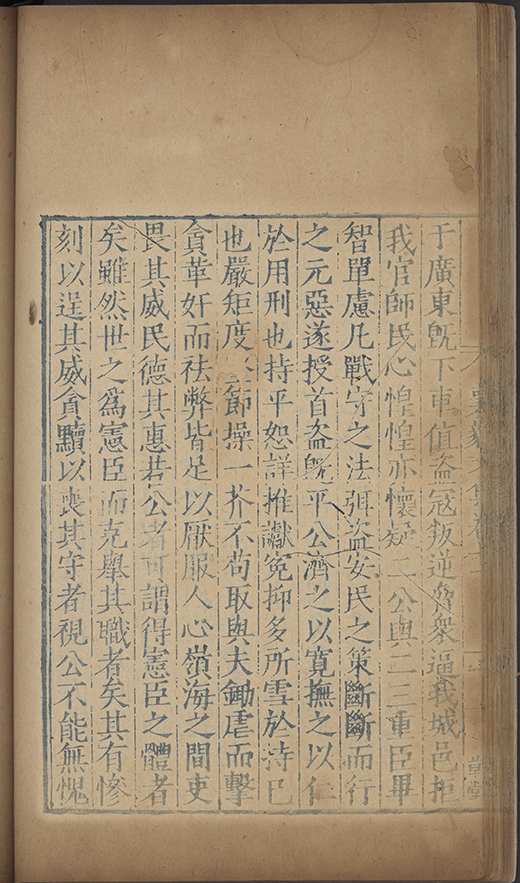 于廣東旣下車値盗冦叛逆脅衆逼我城邑拒
我官師民心惶惶亦懷疑二公與二三重臣畢
智單慮凡戰守之法弭盗安民之策斷斷而行
之元惡遂授首盗旣平公濟之以寛撫之以仁
於用刑也持平恕詳推讞寃抑多所雪於持已
也嚴矩度節操一芥不苟取與夫鋤虐而擊
貪革奸而袪弊皆足以厭服人心嶺海之間吏
畏其威民德其惠若公者可謂得憲臣之體者
矣雖然世之爲憲臣而克舉其職者矣其有慘
刻以逞其威貪黷以喪其守者視公不能無愧
草堂